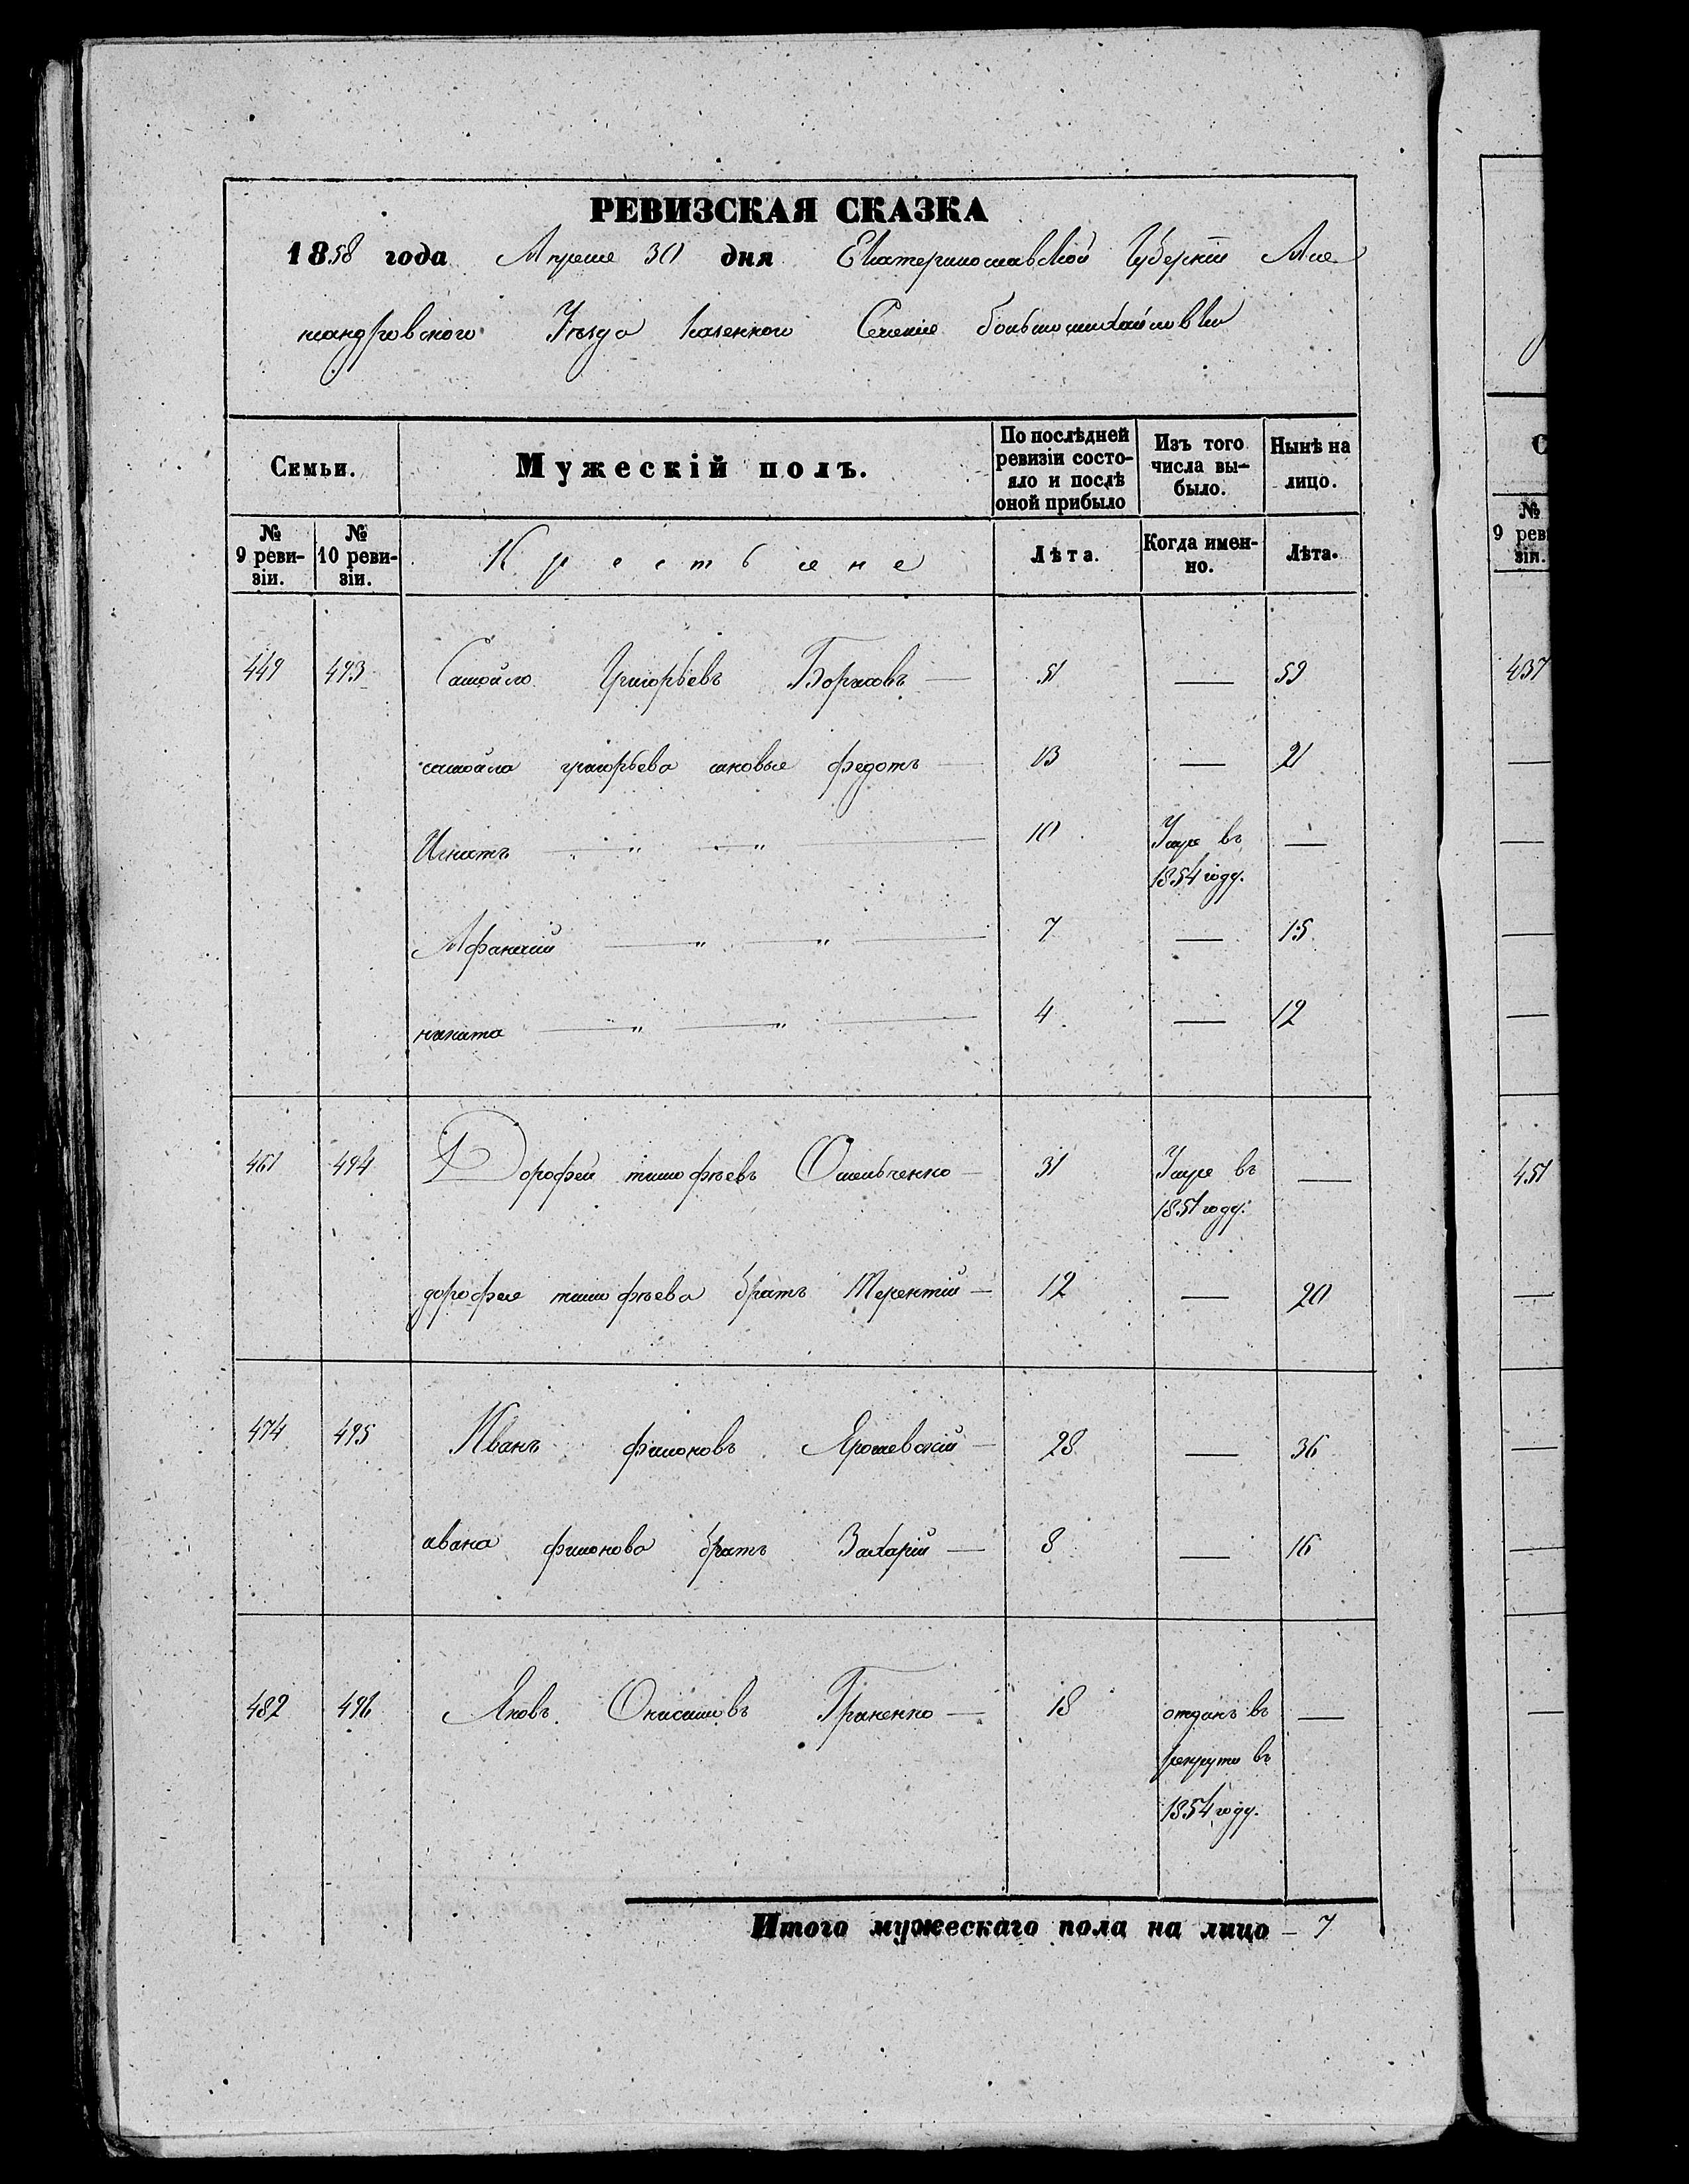 РЕВИЗСКАЯ СКАЗКА
1858 года Апреля 30 дня Екатеринославской Губерніи Алек
сандровского Уѣзда казенного Селенія большомихайловки
Семьи. Мужескій полъ. По послѣдней ревизіи состо- яло и послѣ оной прибыло Изъ того числа вы- было. Нынѣ на лицо.
№ 9 реви- зіи. № 10 реви- зіи. Крестьяне Лѣта. Когда имен- но. Лѣта.
449 493 Самойло Григорьевъ Боржовъ — 51 — 59
самойла григорьева сыновья федотъ — 13 — 21
Игнатъ — „ — „ — 10 Умре въ —
1854 году.
Афанасий — „ — „ — 7 — 15
никита — „ — „ — 4 — 12
461 494 Дорофей тимофѣевъ Омельченко — 31 Умре въ —
1851 году.
дорофея тимофѣева братъ Терентій — 12 — 20
474 495 Иванъ филоновъ Ярошевскій — 28 — 36
ивана филонова братъ Захарій — 8 — 16
482 496 Яковъ Онисимовъ Гриненко — 18 отданъ въ —
рекруты въ
1854 году.
Итого мужескаго пола на лицо — 7
С
№
9 рев
зіи.
437
451